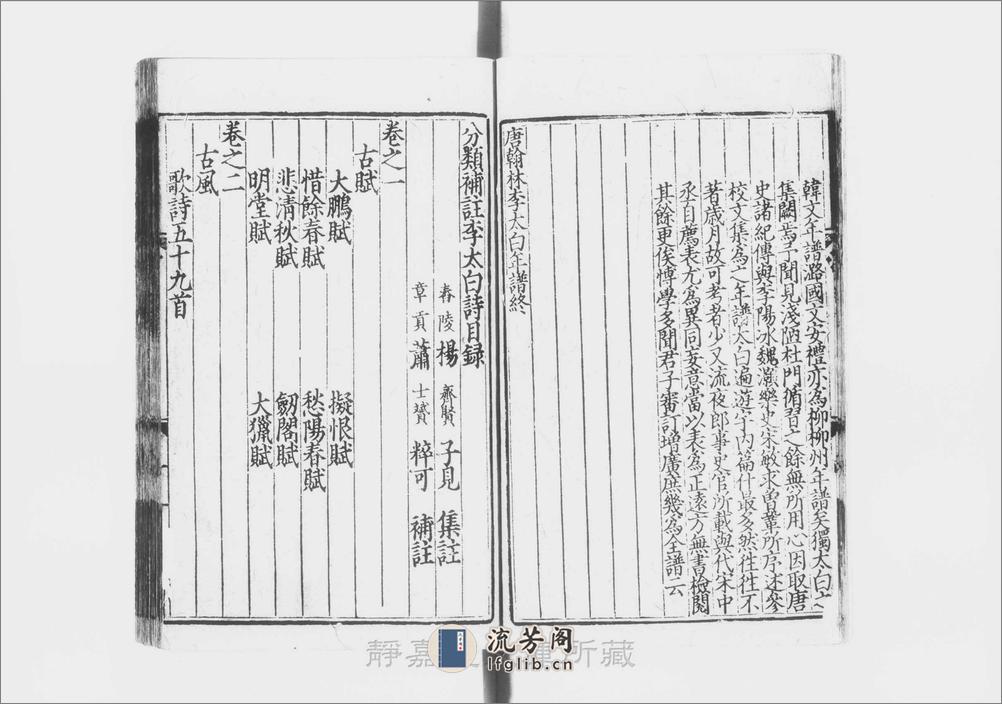 韓文年譜潞國文安禮亦為柳柳州年譜矣獨太白之
集闕焉予聞見淺陋杜門循習之餘無所用心因取唐
史諸紀傳與李陽冰魏灝樂史宋敏求曽鞏所序述參
校文集為之年譜太白遍遊宇内篇什最多然往往不
著歳月故可考者少又流夜郎事史官所載與代宋中
丞自薦表尤為異同妄意當以表為正遠方無書檢閱
其餘更俟博學多聞君子審訂增廣庶幾為全譜云
唐翰林李太白年譜終
分類補註李太白詩目録
舂陵楊齊賢子見集註
章貢蕭士贇粹可補註
卷之一
古賦
大鵬賦 擬恨賦
惜餘春賦 愁陽春賦
悲清秋賦 劒閣賦
明堂賦 大獵賦
卷之二
古風
歌詩五十九首
靜嘉 所藏
流芳阁
lfglib.cn